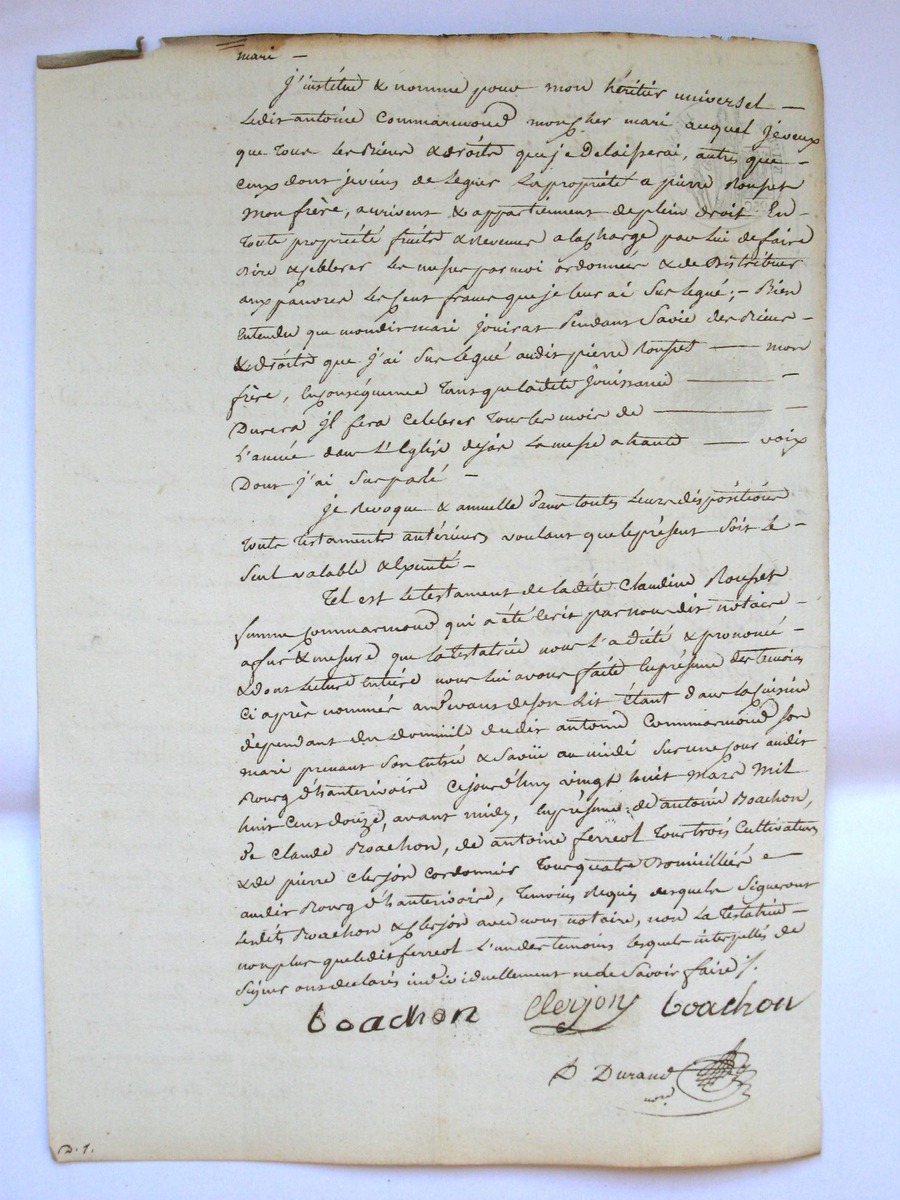 mari —
J'institue & nomme pour mon héritier universel —
Ledit antoine Commarmond mon cher mari auquel Jeveux
que tous les Biens & droits que je Delaisserai, autres que —
ceux dont je viens de leguer la propriété a pierre Rousset
mon frère, arrivent & appartiennent de plein droit En
toute propriété fruits & revenus a la charge par lui de faire
Dire & celebrer les messes par moi ordonnées & de Distribuer
aux pauvres les Cent francs que je leur ai Sus legué; — Bien
Entendu que mondit mari jouiras pendant Savie des Biens —
& droits que j'ai Sus legué audit pierre Rousset — mon
frère, En conséquence tans que ladite Jouissance — —
Durera Jl fera Celebrer tous les mois de — —
L'année dans L'Eglise dejas la messe a haute — voix
Dont j'ai Sus parlé —
Je Revoque & annulle dans toutes leurs dispositions
toute testaments antérieurs voulant que leprésent Soit le —
Seul valable & Exécuté —
Tel est le testament de ladite Claudine Rousset
femme Commarmond qui a été Ecrit par nous dit notaire —
a fur & mesure que la testatrice nous l'a Dicté & prononcé —
& dont lecture Entière nous lui avons faite En présence des temoins
Ci après nommés au devant de son Lit Étant dans la Cuisine
dépendant du domicile dudit antoine Commarmond Son
mari prenant Son Entrée & Savüe au midi Sur une Cour audit
Bourg d'hauterivoire Cejourd'huy vingt huit Mars Mil
huit Cent douze, avant midy, En présence de antoine Boachon,
de Claude Boachon, de antoine ferreol tous trois Cultivateurs
& de pierre Clerjon Cordonnier tous quatre Domiciliés —
audit Bourg d'hauterivoire, temoins Requis desquels Signeront
Lesdits Boachon & Clerjon avec nous notaire, non la testatrice —
non plus que ledit ferreol L'un des temoins lesquels interpellés de
Signer ont declarés individuellement ne le Savoir faire /.
boachon Clerjon boachon
Durand
nore
D. 1.